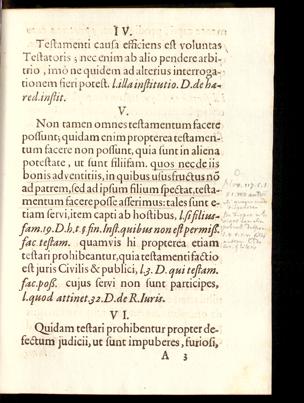 IV.
Testamenti causa efficiens est voluntas
Testatoris; nec enim ab alio pendere arbi-
trio, imò ne quidem ad alterius interroga-
tionem fieri potest. l. illa institutio. D. de hæ-
red. instit.
V.
Non tamen omnes testamentum facere
possunt; quidam enim propterea testamen-
tum facere non possunt, quia sunt in aliena
potestate, ut sunt filiifam. quos nec de iis
bonis adventitiis, in quibus ususfructus nō
ad patrem, sed ad ipsum filium spectat, testa-
mentum facere posse asserimus: tales sunt e-
tiam servi, item capti ab hostibus, l. si filius-
fam. 19. D. h. t. §. fin. Inst. quibus non est permiss.
fac. testam. quamvis hi propterea etiam
testari prohibeantur, quia testamenti factio
est juris Civilis & publici, l. 3. D. qui testam.
fac. poss. cujus servi non sunt participes,
l. quod attinet. 32. D. de R. Iuris.
VI.
Quidam testari prohibentur propter de-
fectum judicii, ut sunt impuberes, furiosi,
A 3